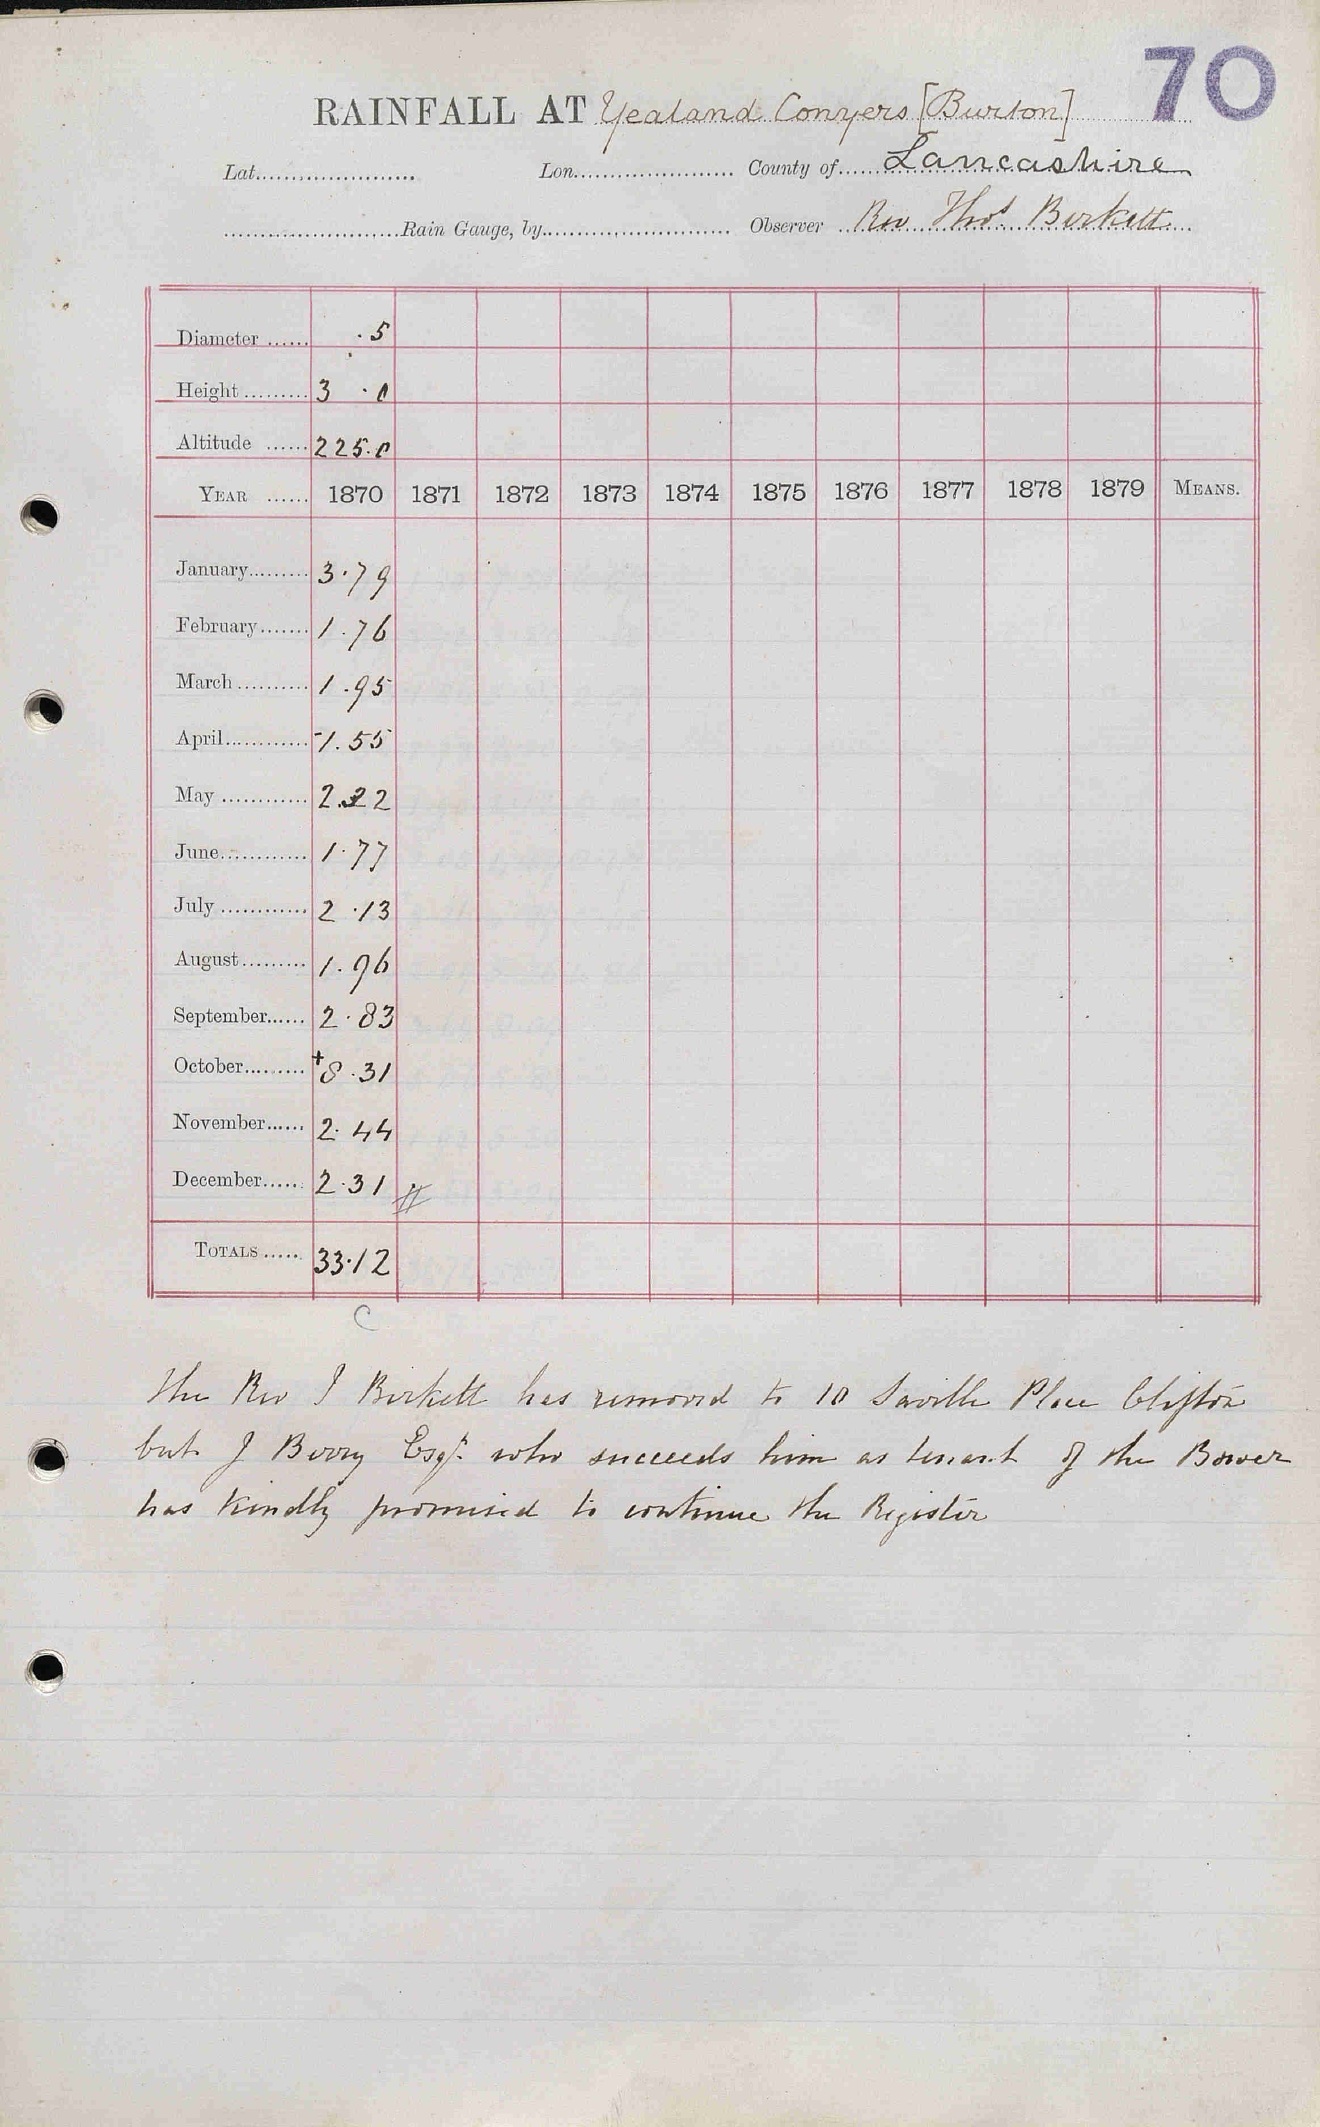 70
RAINFALL AT Yealand Conyers [Burton]
Lat. Lon. County of Lancashire
Rain Gauge, by Observer Rev Thos Birkett
Diameter ...... .5
Height ......... 3 .0
Altitude ...... 225.0
YEAR ...... 1870 1871 1872 1873 1874 1875 1876 1877 1878 1879 MEANS.
January......... 3.79
February....... 1.76
March.......... 1.95
April............ -1.55
May ............ 2.32
June............ 1.77
July ............ 2.13
August......... 1.96
September...... 2.83
October......... +8.31
November...... 2.44
December...... 2.31
TOTALS ..... 33.12
C
The Rev T Birkett has removed to 10 Saville Place Clifton
but J Berry Esqr. who succeeds him as tenant of the Bower
has kindly promised to continue the Register